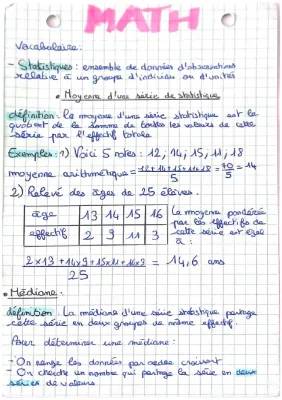 MATH
Vocabulaire:
- Statistiques: ensemble de données d'observations
relative à un groupe d'individus ou d'unités
• Moyenne d'une série de statistique
définition: la moyenne d'une série statistique est le
quotient de la somme de toutes les valeurs de cette
série par l'effectif totale
Exemples: 1) Voici 5 notes: 12, 14, 15, 11, 18
moyenne arithmétique = 12+14+15+11+18/5 = 70/5 = 14
2) Relevé des âges de 25 élèves.
âge 13 14 15 16
effectif 2 9 11 3
La moyenne pondérée
par les effectifs de
cette série est égal
à:
2x13+14x9+15x11+16x3/25 = 14,6 ans
• Médiane:
définition: La médiane d'une série statistique partage
cette série en deux groupes de même effectif.
Pour déterminer une médiane:
- On range les données par ordre croissant
- On cherche un nombre qui partage la série en deux
séries de valeurs